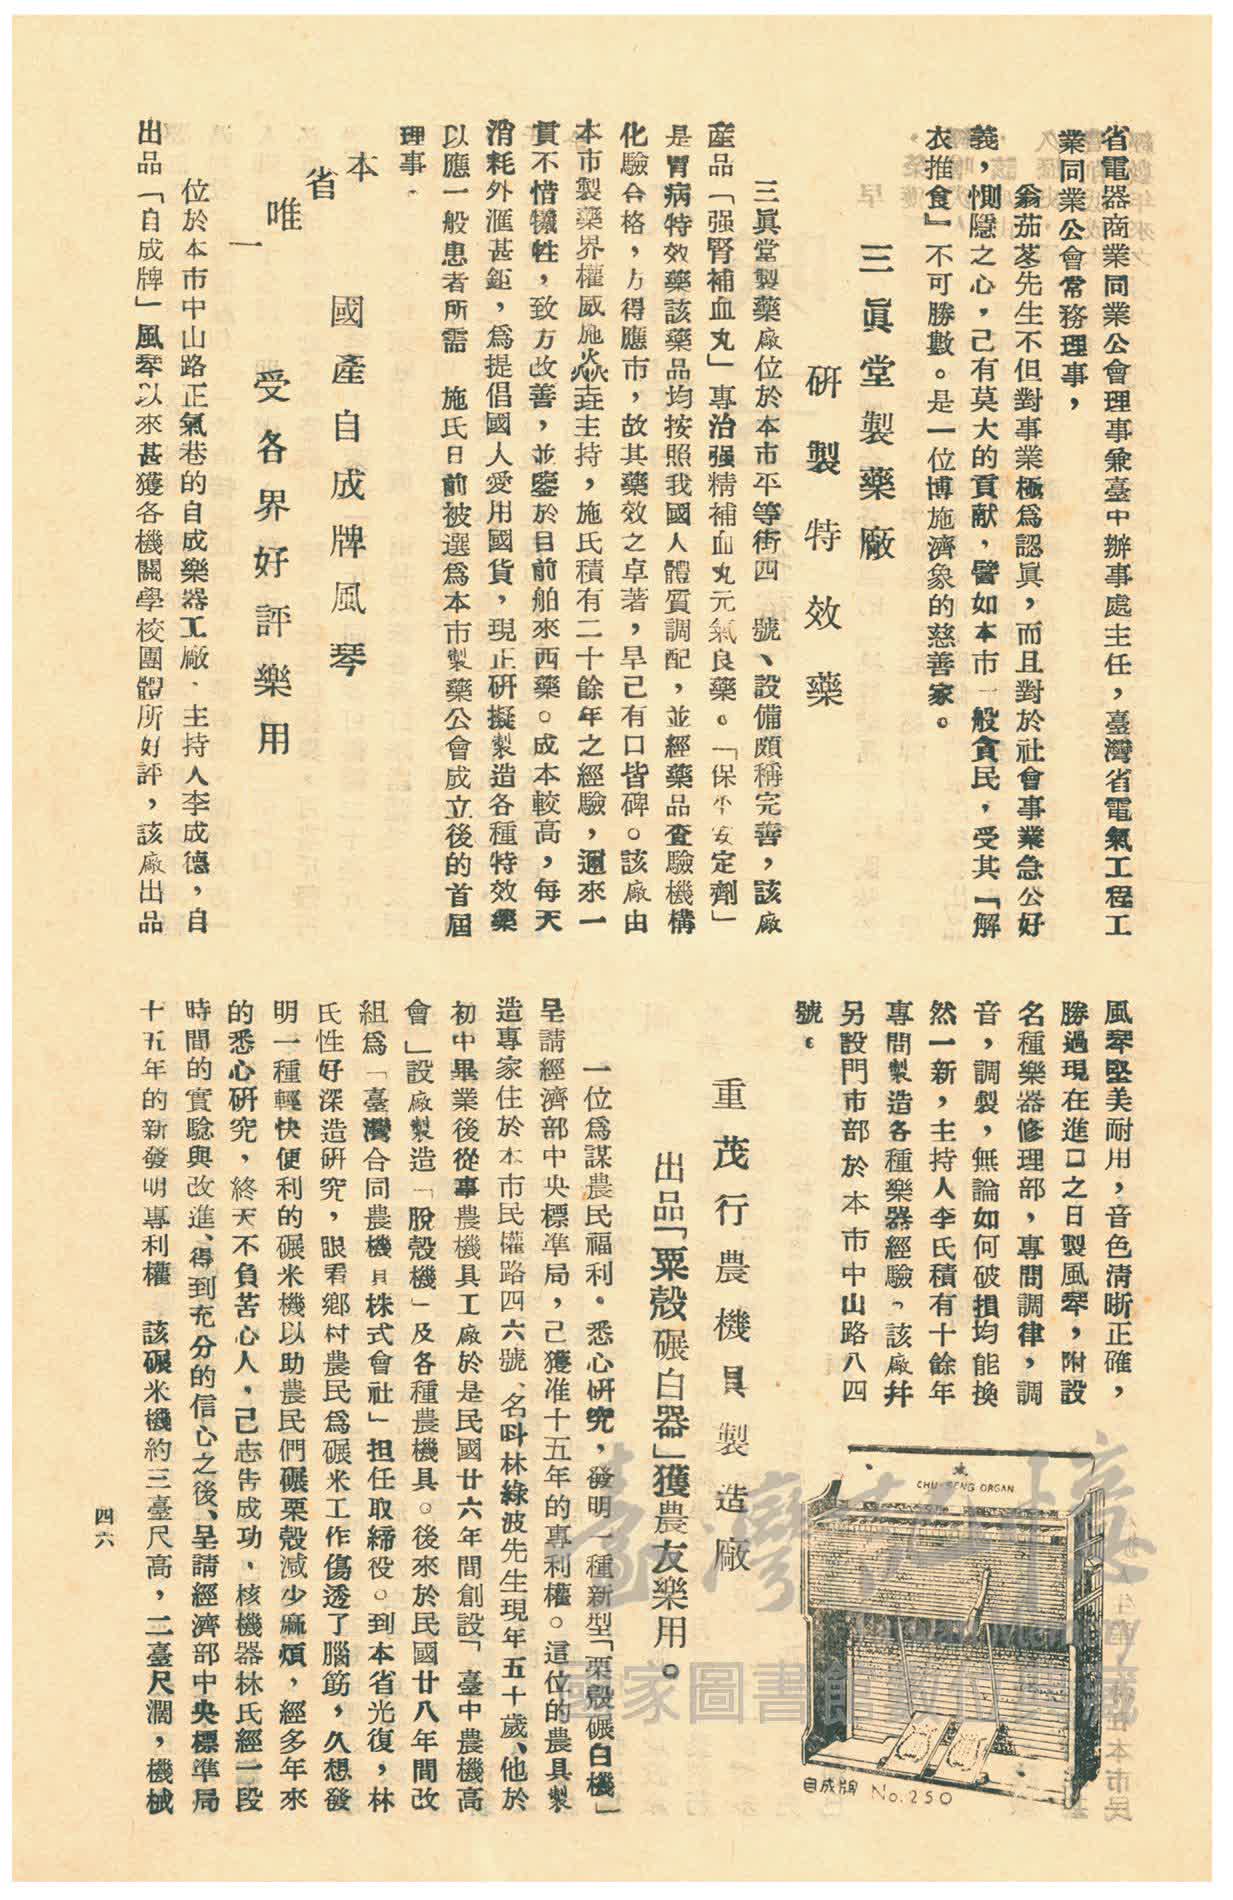 省電器商業同業公會理事兼臺中辦事處主任，臺灣省電氣工程工
業同業公會常務理事，
翁茄苳先生不但對事業極爲認眞，而且對於社會事業急公好
義，惻隱之心，己有莫大的貢献，譬如本市一般貪民，受其「解
衣推食」不可勝數。是一位博施濟象的慈善家。
三眞堂製藥廠
硏製特效藥
三眞堂製藥廠位於本市平等街四 號、設備頗稱完善，該廠
產品「强腎補血丸」專治强精補血丸元氣良藥。「保平安定劑」
是胃病特效藥該藥品均按照我國人體質調配，並經藥品査驗機構
化驗合格，方得應市，故其藥效之卓著，早己有口皆碑。該廠由
本市製藥界權威施焱垚主持，施氏積有二十餘年之經驗，邇來一
貫不惜犧牲，致方改善，並鑒於目前舶來西藥。成本較高，每天
消耗外滙甚鉅，爲提倡國人愛用國貨，現正硏擬製造各種特效藥
以應一般患者所需 施氏日前被選爲本市製藥公會成立後的首屆
理事．
本省唯一
國產自成牌風琴
受各界好評樂用
位於本市中山路正氣巷的自成樂器工廠．主持人李成德，自
出品「自成牌」風琴以來甚獲各機關學校團體所好評，該廠出品
風琴堅美耐用，音色清晰正確，
勝過現在進口之日製風琴，附設
名種樂器修理部，專問調律，調
音，調製，無論如何破損均能換
然一新，主持人李氏積有十餘年
專問製造各種樂器經驗，該廠幷
另設門市部於本市中山路八四
號。
CHU-CENG ORGAN
自成牌 No.250
重茂行農機具製造廠
出品「粟殼碾白器」獲農友樂用。
一位爲謀農民福利．悉心硏究，發明一種新型「粟殼碾白機」
呈請經濟部中央標準局，己獲准十五年的專利權。這位的農具製
造專家住於本市民權路四六號、名叫林綠波先生現年五十歲、他於
初中畢業後從事農機具工廠於是民國廿六年間創設「臺中農機高
會」設廠製造「脫殼機」及各種農機具。後來於民國廿八年間改
組爲「臺灣合同農機具株式會社」担任取締役。到本省光復，林
氏性好深造硏究，眼看鄉村農民爲碾米工作傷透了腦筋，久想發
明一種輕快便利的碾米機以助農民們碾栗殼減少麻煩，經多年來
的悉心硏究，終天不負苦心人，己志吿成功、核機器林氏經一段
時間的實驗與改進、得到充分的信心之後、呈請經濟部中央標準局
十五年的新發明專利權 該碾米機約三臺尺高，二臺尺濶，機械
四六
臺灣記憶
國家圖書館數位典藏